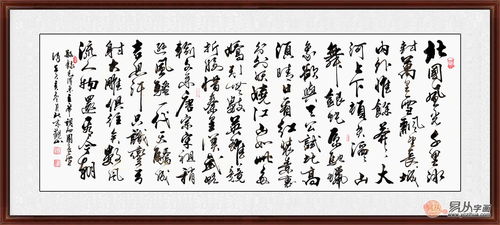 北國風光千里冰
封萬里雪飄望長城
内外惟餘莽莽大
河上下頓失滔滔山
舞銀蛇原馳蠟
象欲與天公試比高
須晴日看紅裝素裹
分外妖嬈江山如此多
嬌引無數英雄競
折腰惜秦皇漢武略
輸文采唐宗宋祖稍
遜風騷一代天驕成
吉思汗只識彎弓
射大雕俱往矣數風
流人物還看今朝
易从字画